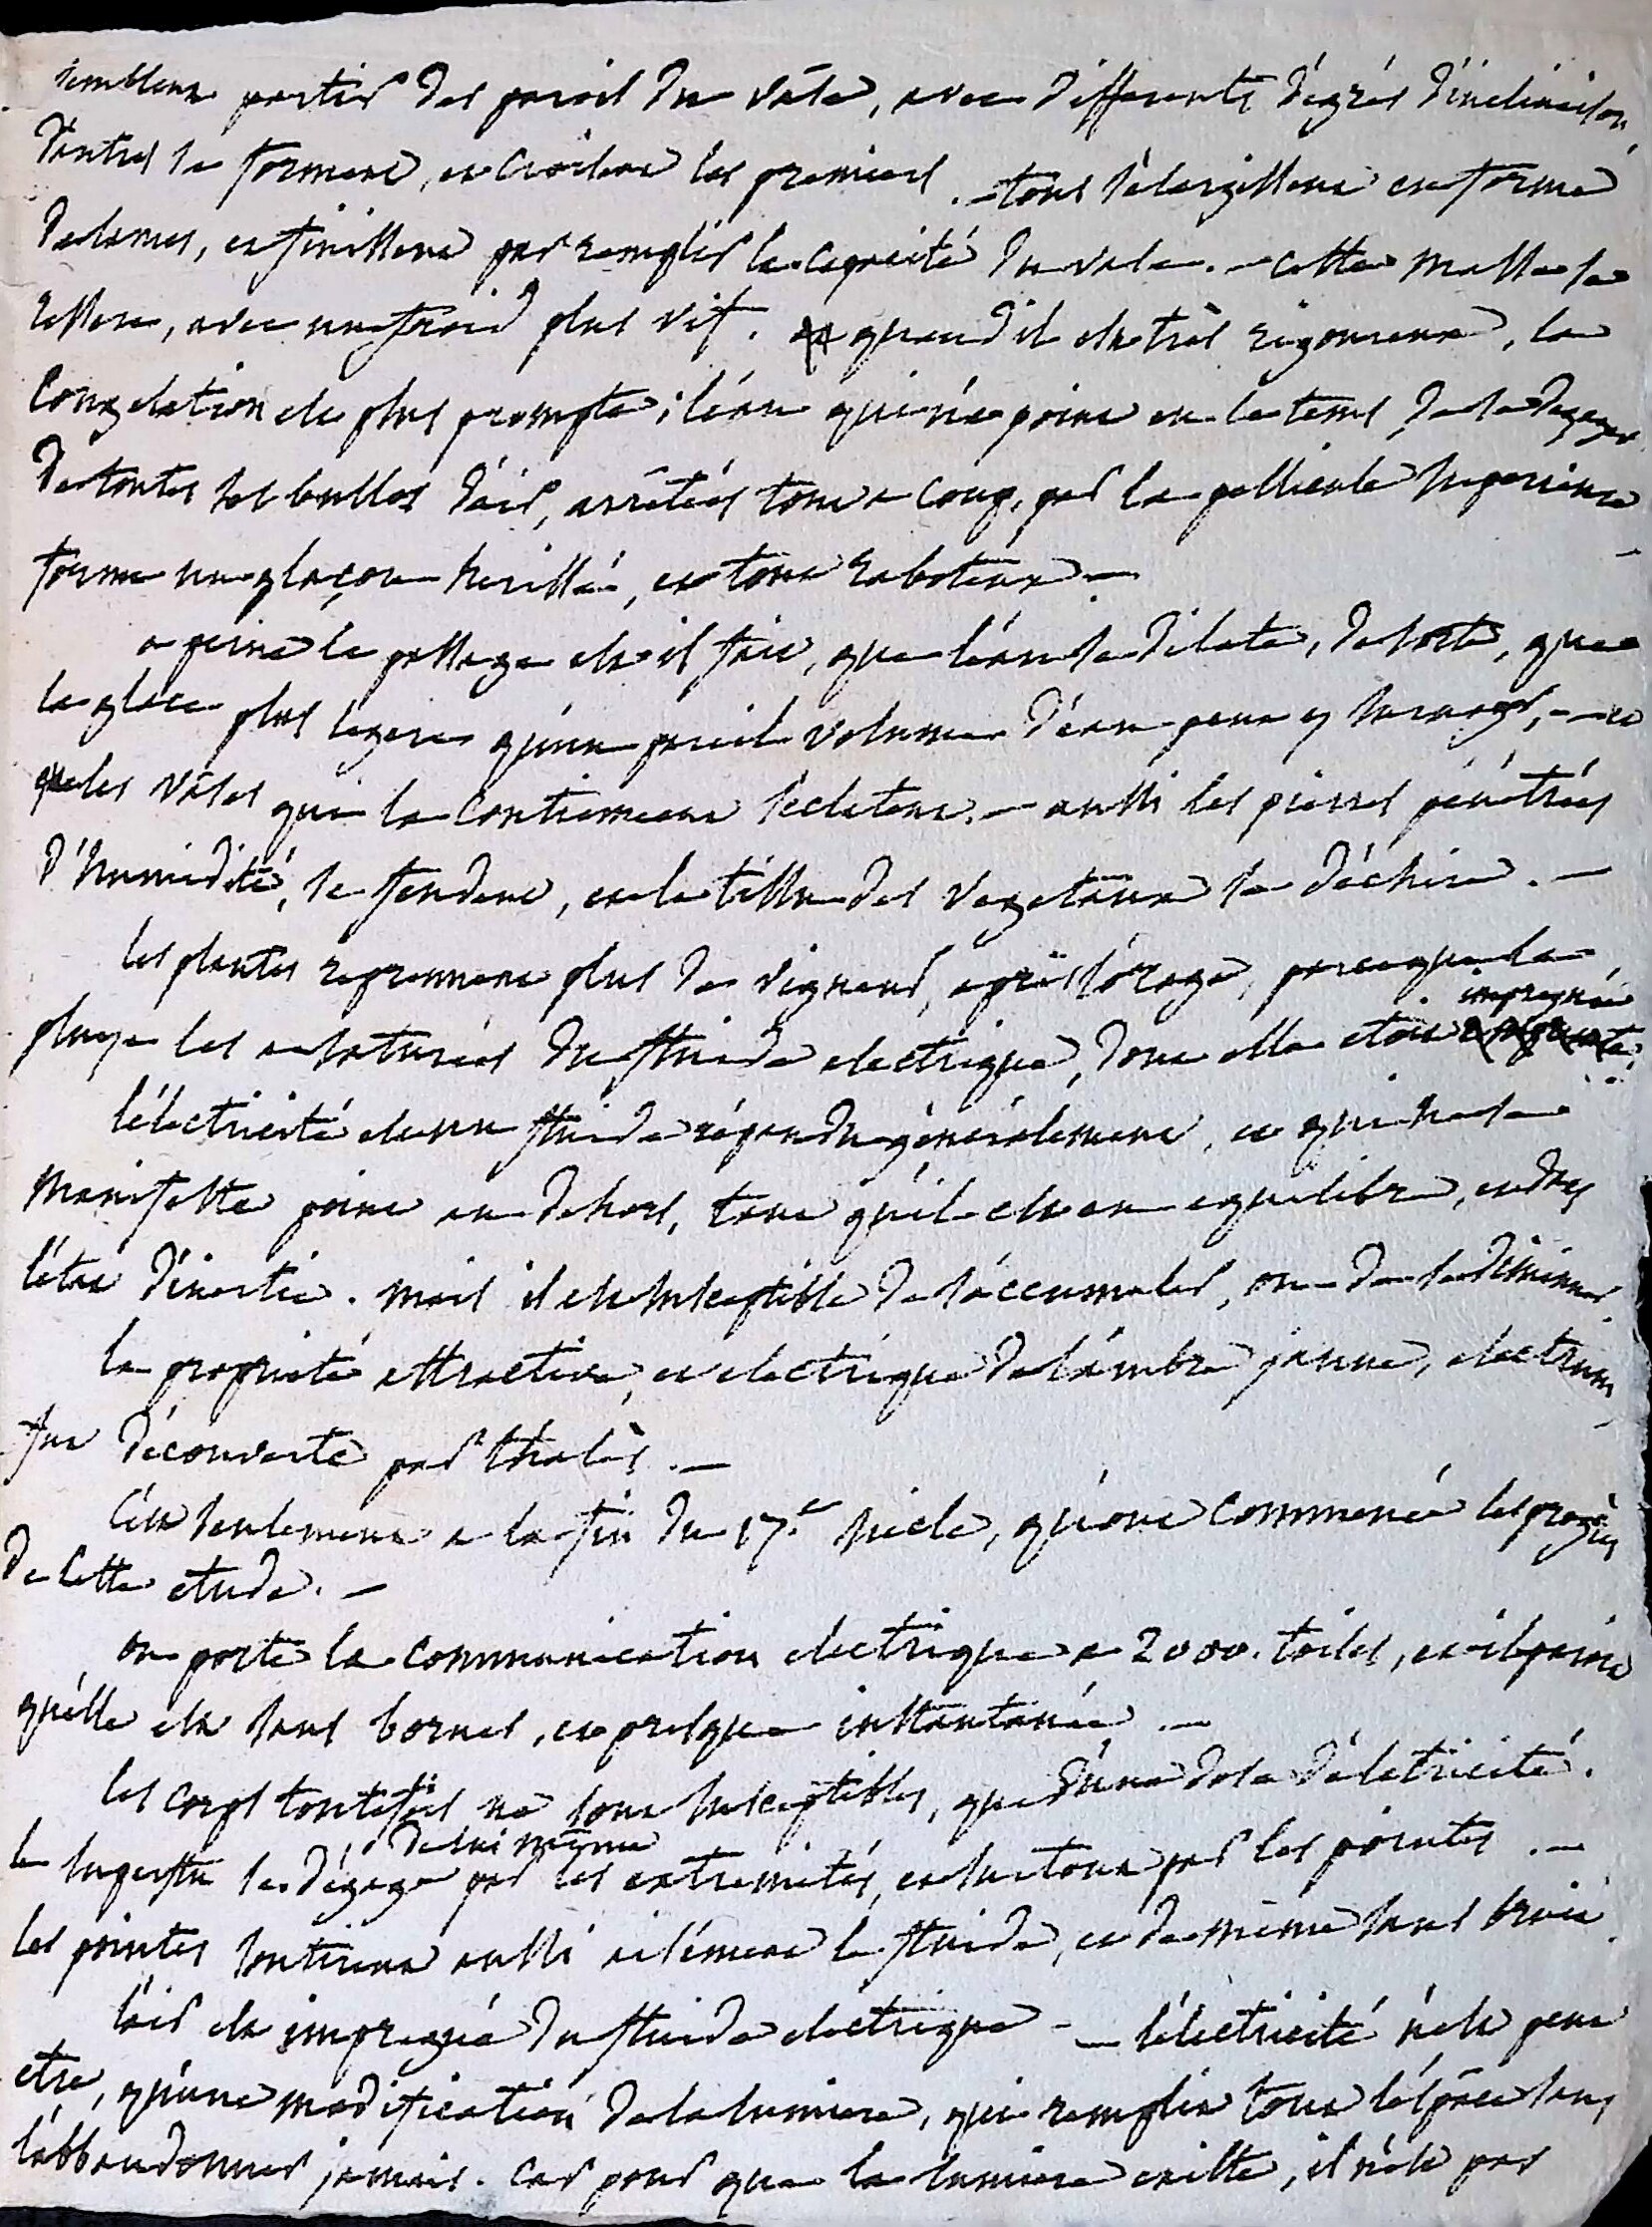 semblent partir des parois du vase, avec differents dégrés d'inclinaison,
d'autres se forment, et croisent les premiers. – tous s'élargissent en forme
de lames, et finissent par remplir la capacité du vase. – cette masse se
resserre, avec un froid plus vif. quand il est très rigoureux, la
congelation est plus prompte ; l'eau qui n'a point eu le tems de se dégager
de toutes ses bulles d'air, arrêtées tout a coup, par la pellicule superieure
forme un glaçon herissé, et tout raboteux –
a peine le passage est il fait, que l'eau se dilate, de sorte, que
la glace plus legere qu'un pareil volume d'eau peut y surnager, – et
que les vases qui la contiennent s'eclatent. – aussi les pierres pénétrées
d'humidité, se fendent, et le tissu des vegetaux se déchire. –
les plantes reprennent plus de vigueur, après l'orage, parce que la
pluye les a saturées du fluide electrique, dont elle etoit impregnée
l'électricité est un fluide répandu généralement, et qui ne se
manifeste point au dehors, tant qu'il est en equilibre, et dans
l'état d'inertie. mais il est susceptible de s'accumuler, ou de se diminuer.
la propriété attractive, et electrique de l'ambre jaune, electrum
fut découverte par thalès. –
c'est seulement a la fin du 17.e siecle, qu'ont commencé les progrès
de cette etude. –
on porte la communication electrique a 2000. toises, et il paroit
qu'elle est sans bornes, et presque instantanée. –
les corps toutefois ne sont susceptibles, que d'une dose d'életricité.
le superflu se dégage de lui même par les extremités, et surtout par les pointes. –
les pointes soutirent aussi aisément le fluide, et de même sans bruit.
l'air est impregné du fluide electrique – – l'électricité n'est peut
etre, qu'une modification de la lumiere, qui remplit tout l'éspace sans
l'abbandonner jamais. car pour que la lumiere existe, il n'est pas